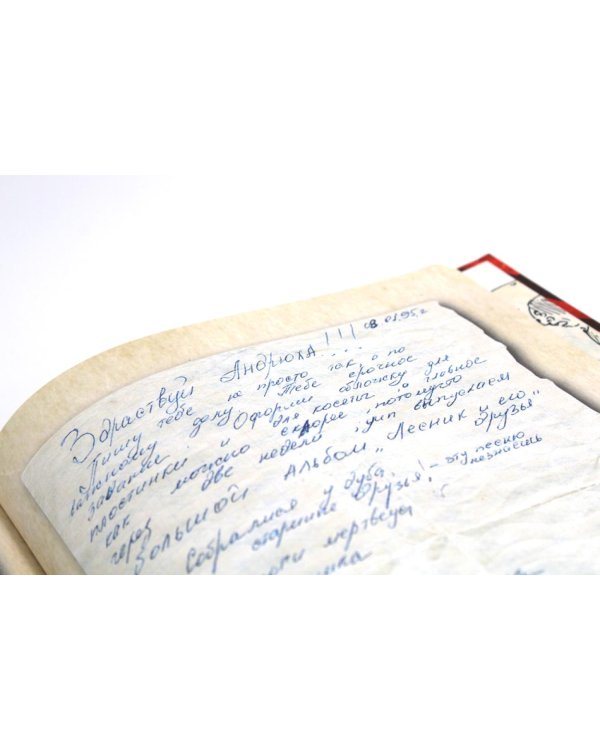 Здраствуй Андрюха!!! 08.01,95,г
Пишу тебе не просто так а по
важному делу.... Тебе срочное
задание Оформи обложку для
пластинки и для косеты, а главное
как можно скорее, потомушто
через две недели, уип выпускаем
Большой альбом „Лесник и его
друзья"
Собралися у дуба,
старшие друзья! - эту песню
незнаешь
мертвецы